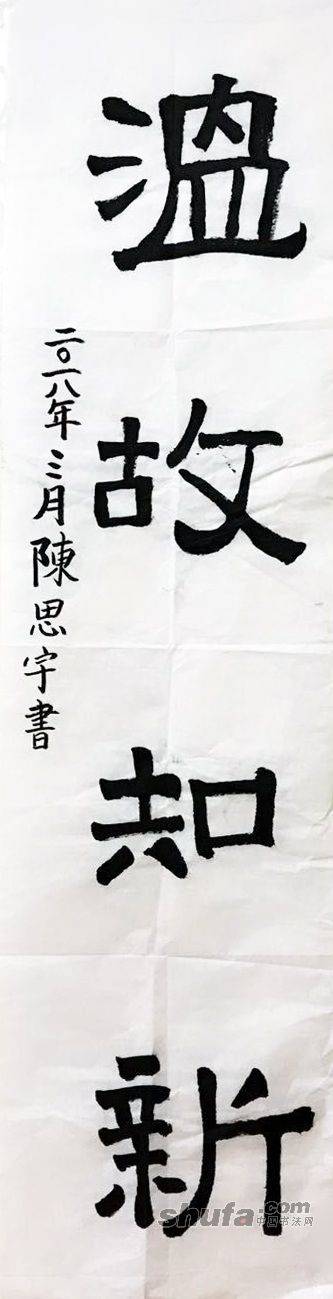 温故知新
二〇一八年三月陳思宇書
shufa.com
中国书法网